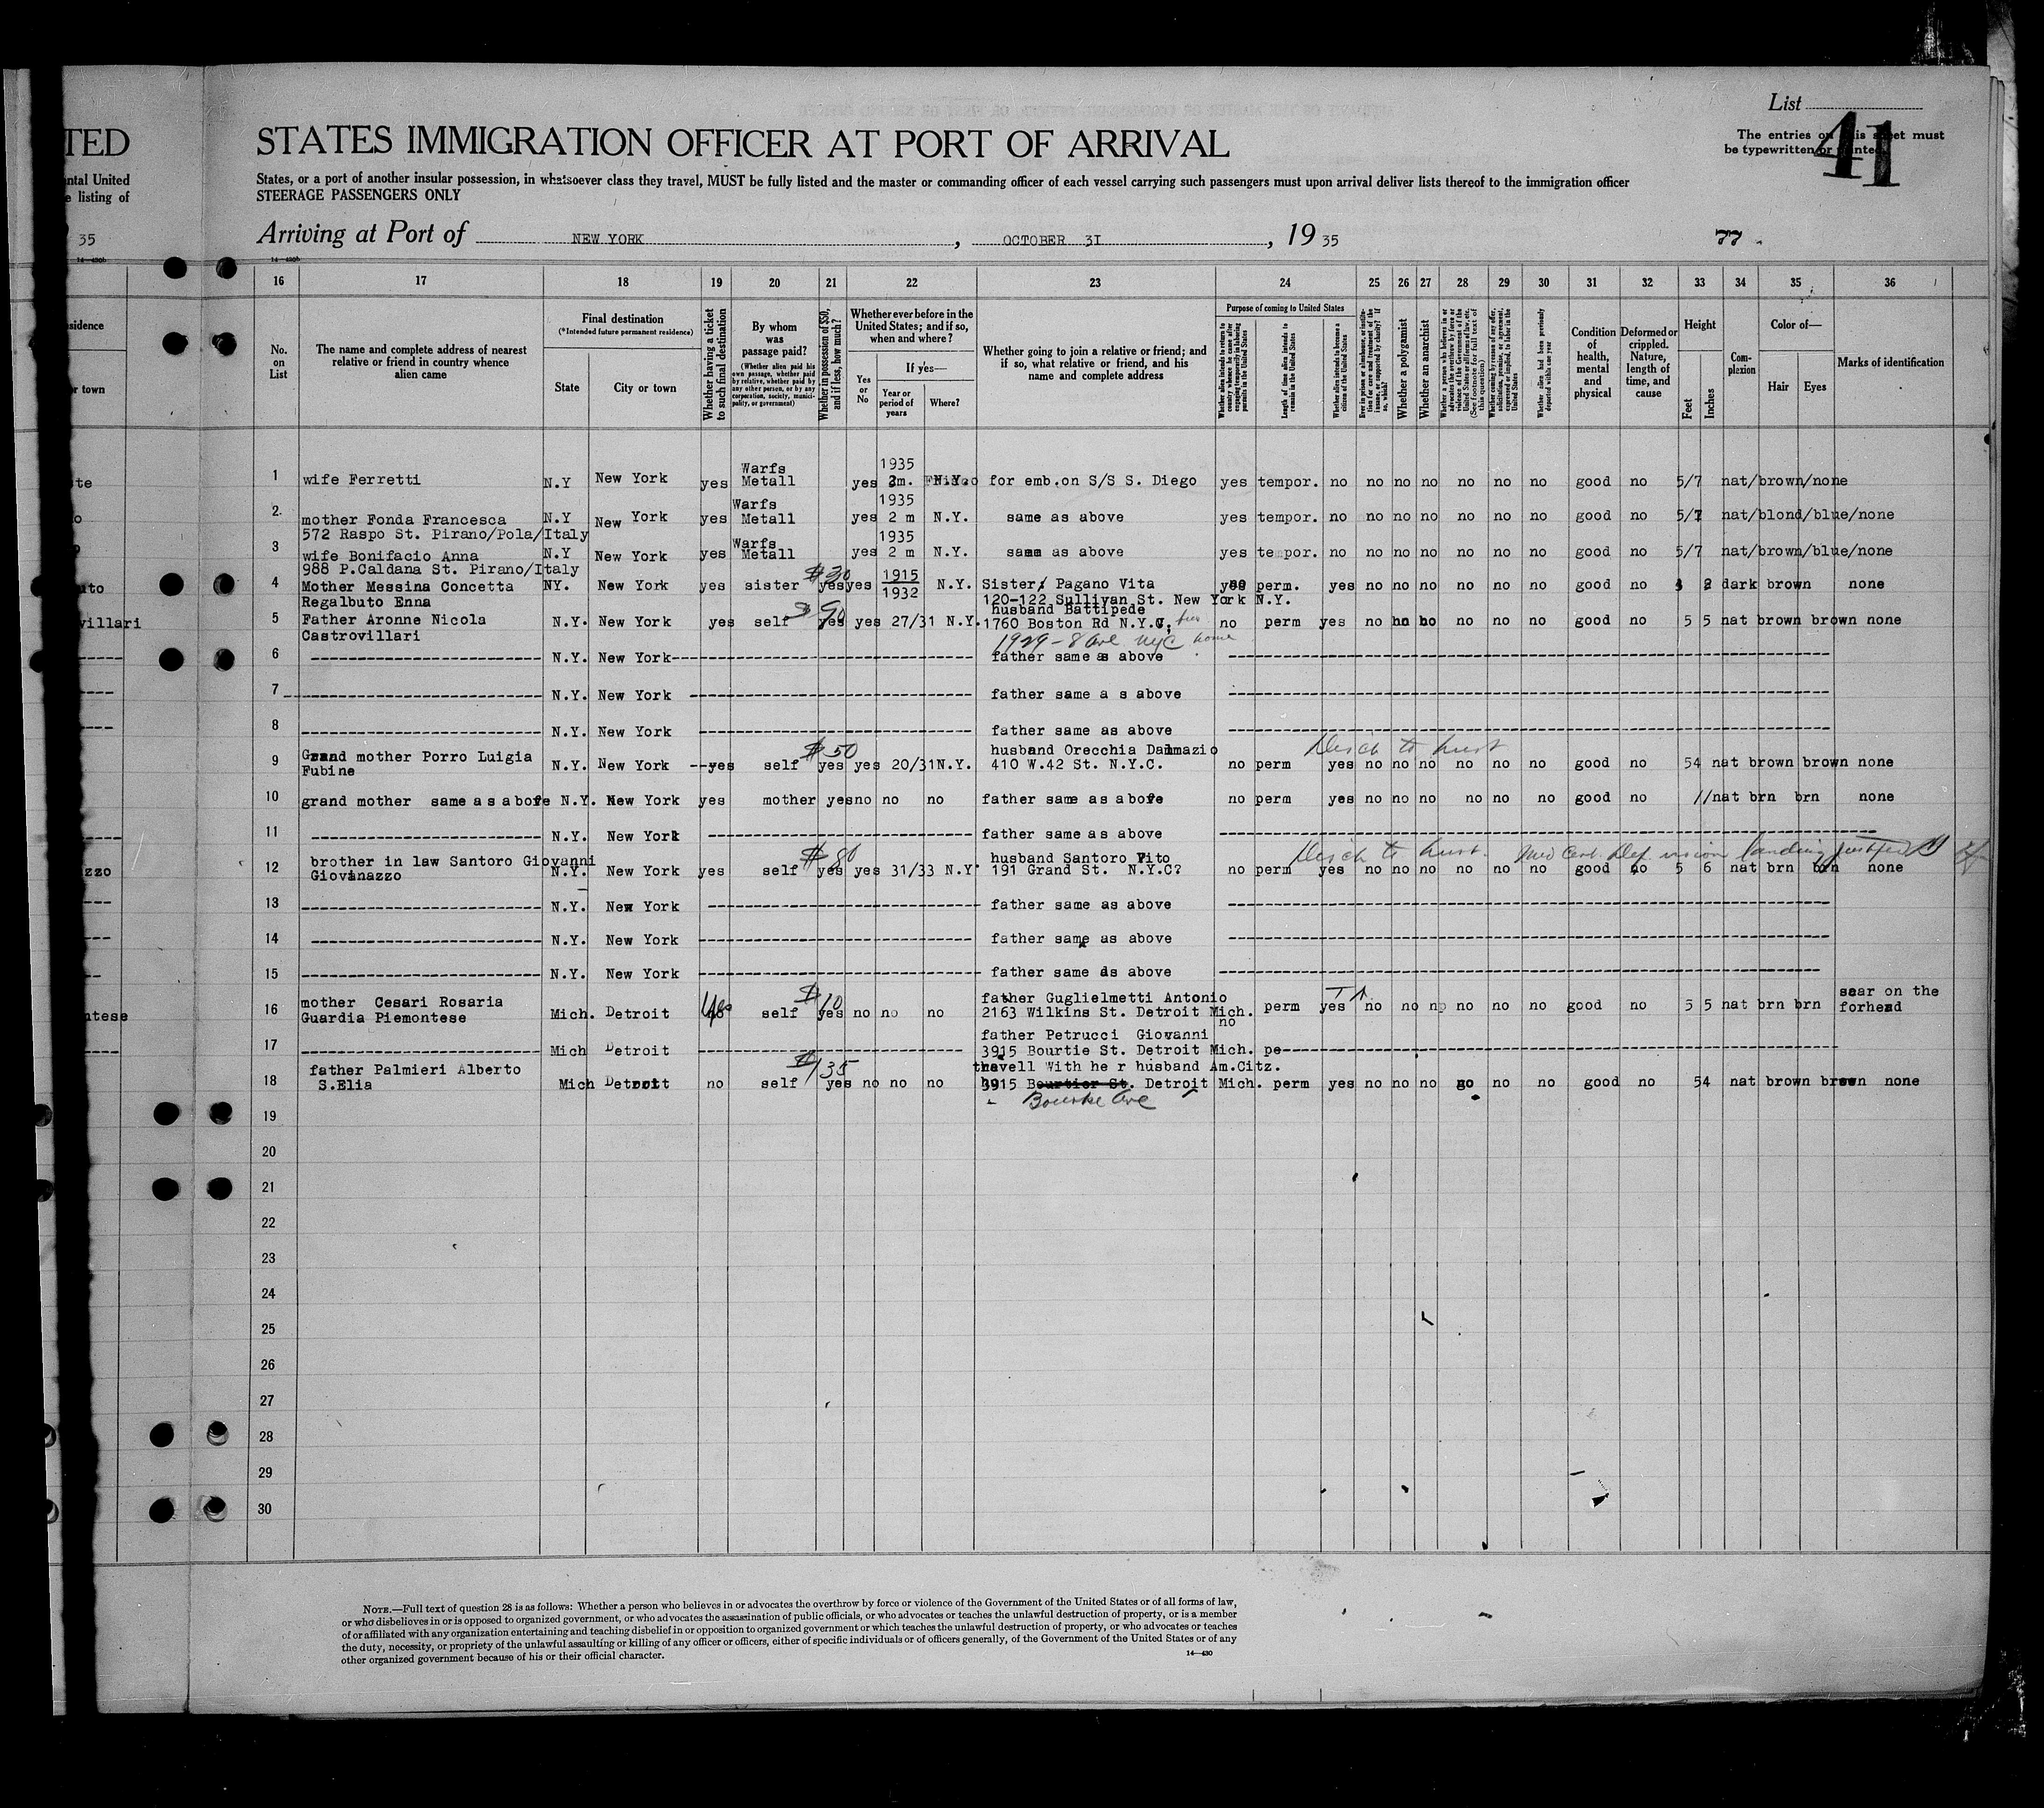 List
41
The entries on this sheet must
be typewritten or printed.
TED
STATES IMMIGRATION OFFICER AT PORT OF ARRIVAL
ntal United
States, or a port of another insular possession, in whatsoever class they travel, MUST be fully listed and the master or commanding officer of each vessel carrying such passengers must upon arrival deliver lists thereof to the immigration officer
e listing of
STEERAGE PASSENGERS ONLY
35
Arriving at Port of NEW YORK, OCTOBER 3I, 19 35
77
14-430b
16 17 18 19 20 21 22 23 24 25 26 27 28 29 30 31 32 33 34 35 36
No. on List
The name and complete address of nearest relative or friend in country whence alien came
Final destination
(*Intended future permanent residence)
State
City or town
Whether having a ticket to such final destination
By whom was passage paid?
(Whether alien paid his own passage, whether paid by relative, whether paid by any other person, or by any corporation, society, municipality, or government)
Whether in possession of $50, and if less, how much?
Whether ever before in the United States; and if so, when and where?
Yes or No
If yes—
Year or period of years
Where?
Whether going to join a relative or friend; and if so, what relative or friend, and his name and complete address
Purpose of coming to United States
Whether alien intends to return to country whence he came after engaging temporarily in laboring pursuits in the United States
Length of time alien intends to remain in the United States
Whether alien intends to become a citizen of the United States
Whether a polygamist
Whether an anarchist
Condition of health, mental and physical
Deformed or crippled. Nature, length of time, and cause
Height
Feet
Inches
Complexion
Color of—
Hair
Eyes
Marks of identification
1 wife Ferretti N.Y New York yes Warfs Metall yes 1935 N.Y. for emb.on S/S S. Diego yes tempor. no no no no no no no good no 5/7 nat/brown/none
2 mother Fonda Francesca N.Y New York yes Warfs Metall yes 1935 2 m N.Y. same as above yes tempor. no no no no no no no good no 5/7 nat/blond/blue/none
572 Raspo St. Pirano/Pola/Italy
3 wife Bonifacio Anna N.Y New York yes Warfs Metall yes 1935 2 m N.Y. same as above yes tempor. no no no no no no no good no 5/7 nat/brown/blue/none
988 P.Caldana St. Pirano/Italy
4 Mother Messina Concetta NY. New York yes sister $30 yes yes 1915 1932 N.Y. Sister, Pagano Vita perm. yes no no no no no no good no dark brown none
Regalbuto Enna
120-122 Sullivan St. New York N.Y.
husband Battipede
5 Father Aronne Nicola N.Y. New York yes self $ 90 yes yes 27/31 N.Y. 1760 Boston Rd N.Y.C. no perm yes no no no no no no good no 5 5 nat brown brown none
Castrovillari
1929 - 8 Ave NYC home
6 N.Y. New York father same as above
7 N.Y. New York father same a s above
8 N.Y. New York father same as above
9 Grand mother Porro Luigia husband Orecchia Dalmazio
Fubine N.Y. New York --yes self $50 yes yes 20/31N.Y. 410 W.42 St. N.Y.C. no perm yes no no no no no no good no 54 nat brown brown none
10 grand mother same as above N.Y. New York yes mother yes no no no father same as above no perm yes no no no no no no good no nat brn brn none
11 N.Y. New York father same as above
12 brother in law Santoro Giovanni husband Santoro Vito
Giovinazzo N.Y. New York yes self $80 yes yes 31/33 N.Y. 191 Grand St. N.Y.C? no perm yes no no no no no no good no 5 6 nat brn brn none
13 N.Y. New York father same as above
14 N.Y. New York father same as above
15 N.Y. New York father same as above
16 mother Cesari Rosaria father Guglielmetti Antonio scar on the
Guardia Piemontese Mich. Detroit Yes self $10 yes no no no 2163 Wilkins St. Detroit Mich. no perm yes no no no no no no good no 5 5 nat brn brn forhead
father Petrucci Giovanni
17 Mich Detroit 3915 Bourtie St. Detroit Mich. pe
18 father Palmieri Alberto travell With he r husband Am.Citz.
S.Elia Mich Detroit no self $135 yes no no no 3915 Bourtier St. Detroit Mich. perm yes no no no no no no good no 54 nat brown brown none
Bourke Ave
19
20
21
22
23
24
25
26
27
28
29
30
NOTE.—Full text of question 28 is as follows: Whether a person who believes in or advocates the overthrow by force or violence of the Government of the United States or of all forms of law,
or who disbelieves in or is opposed to organized government, or who advocates the assassination of public officials, or who advocates or teaches the unlawful destruction of property, or is a member
of or affiliated with any organization entertaining and teaching disbelief in or opposition to organized government or which teaches the unlawful destruction of property, or who advocates or teaches
the duty, necessity, or propriety of the unlawful assaulting or killing of any officer or officers, either of specific individuals or of officers generally, of the Government of the United States or of any
other organized government because of his or their official character.
14—430